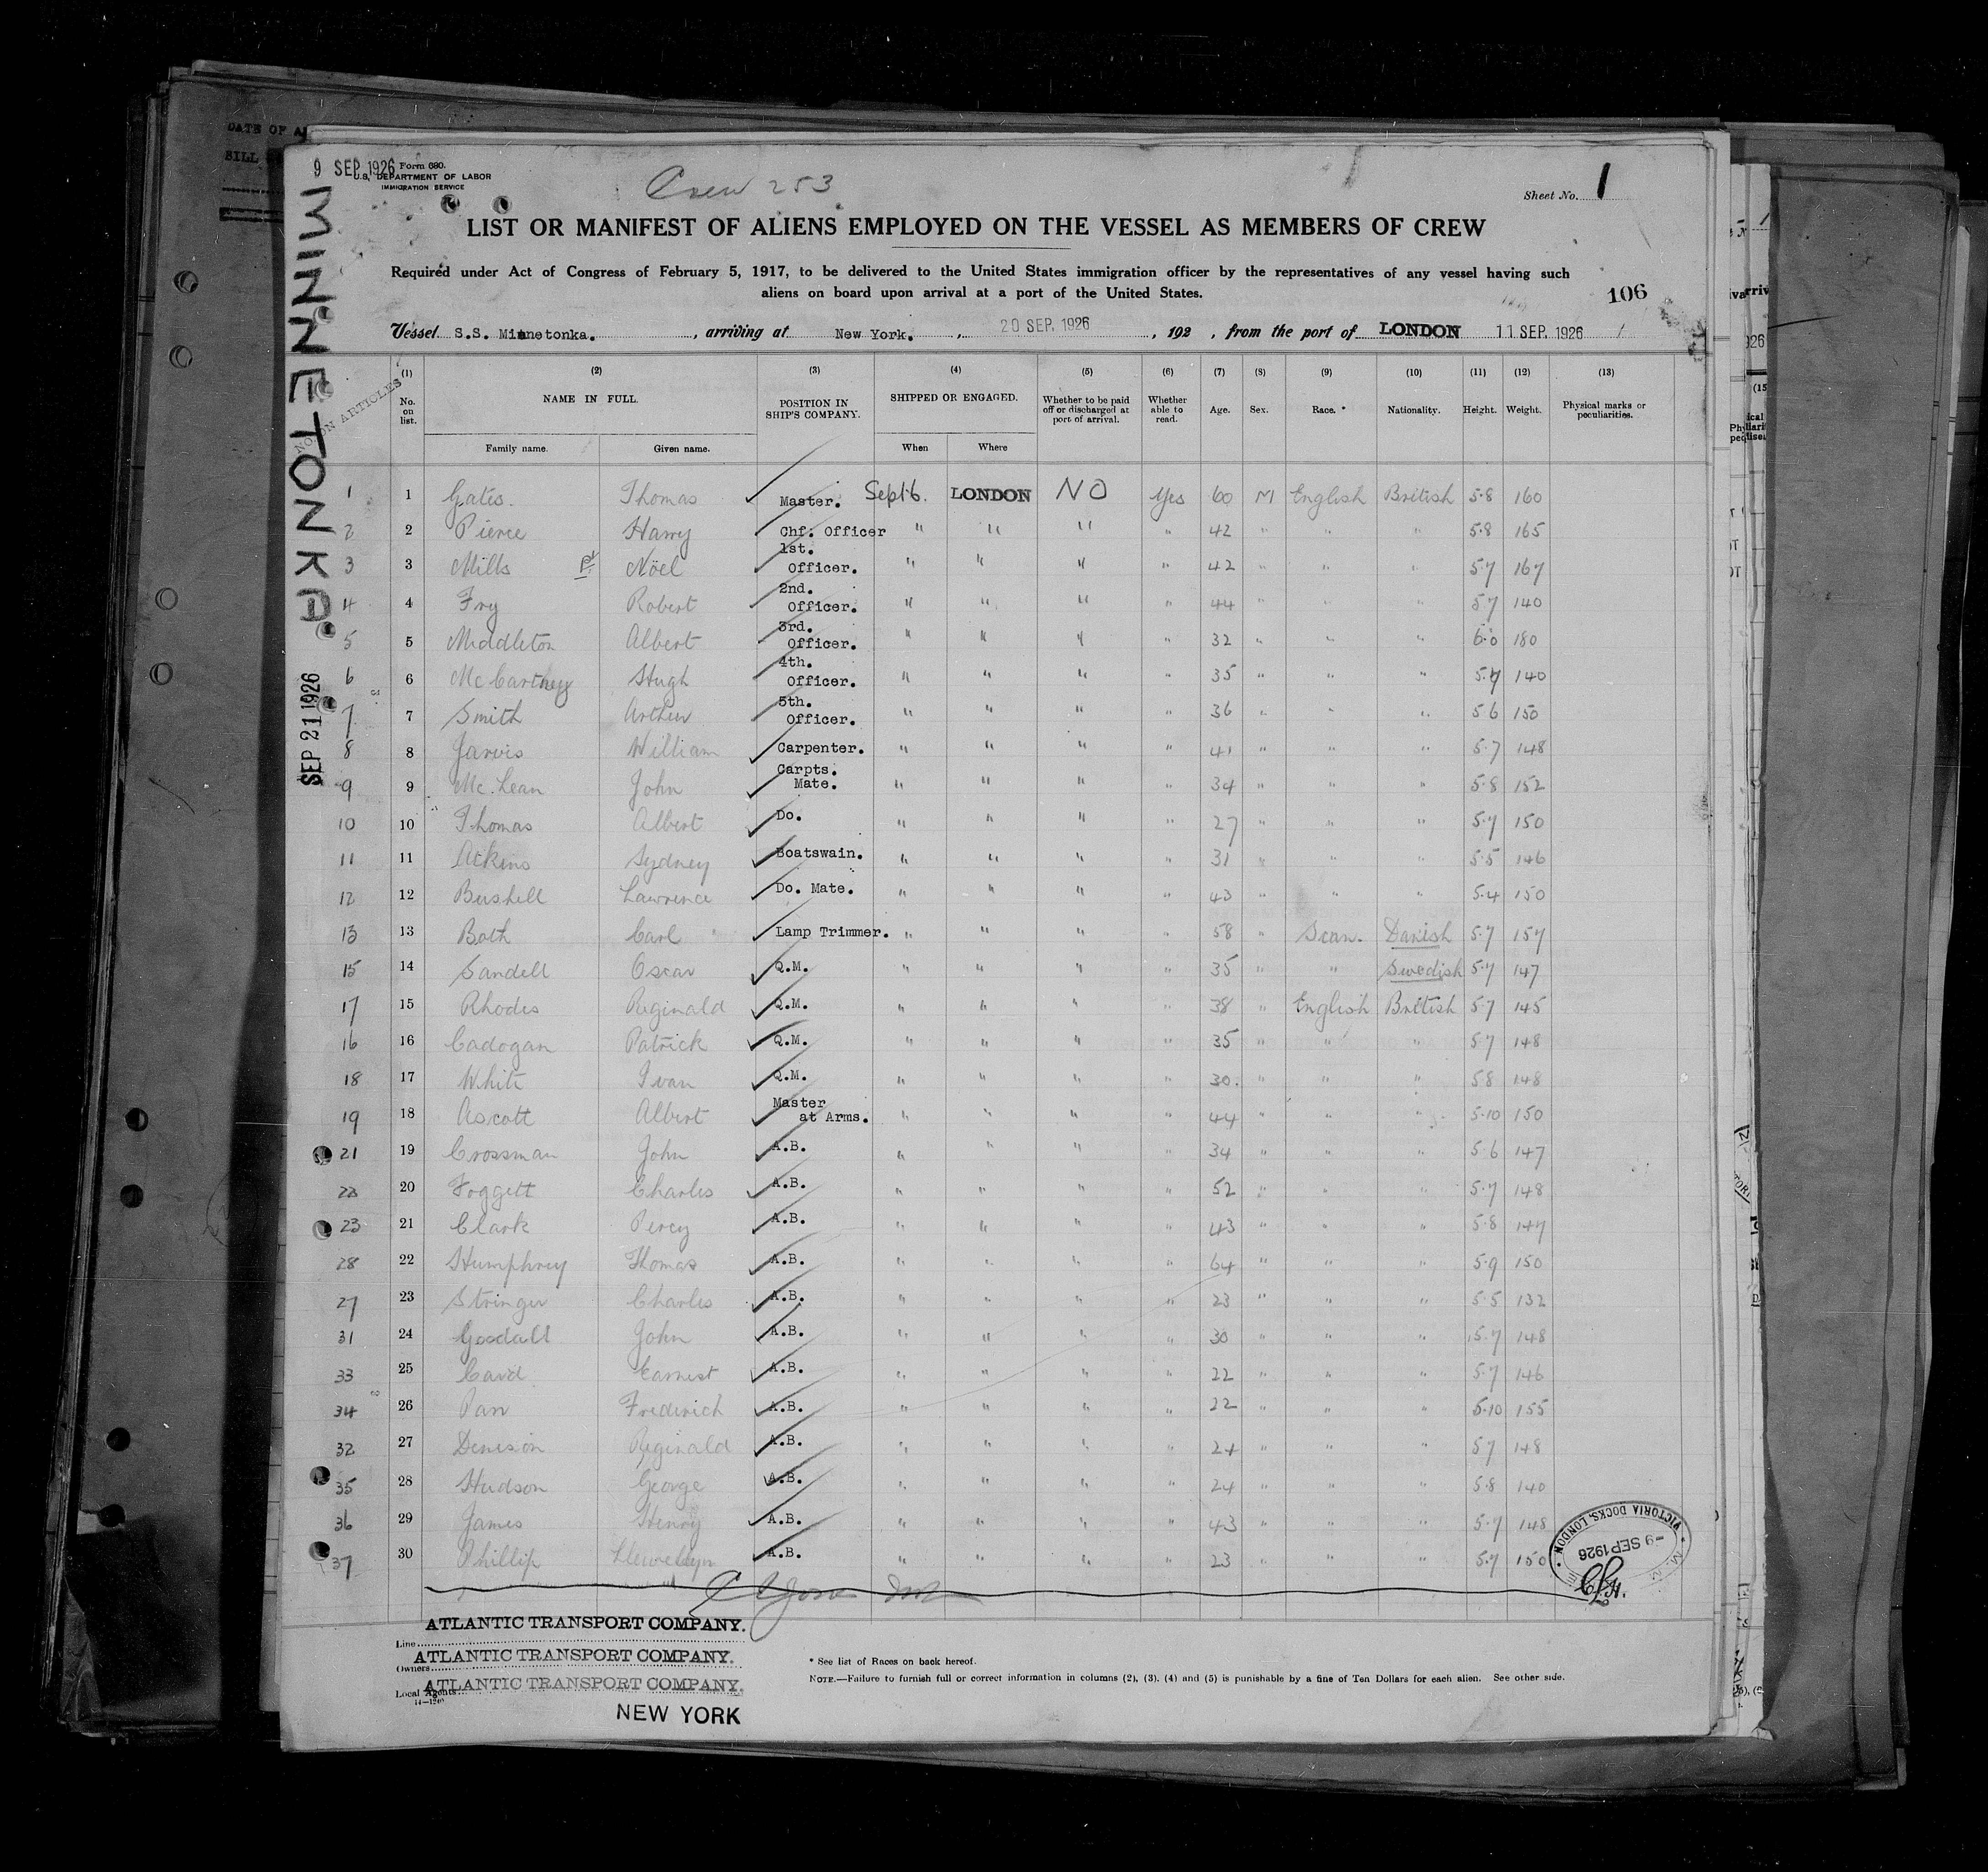 DATE OF A
BILL
9 SEP 1926 Form 680.
U.S. DEPARTMENT OF LABOR
IMMIGRATION SERVICE
Crew 253
Sheet No. 1
MINNETONKA.
SEP 21 1926
LIST OR MANIFEST OF ALIENS EMPLOYED ON THE VESSEL AS MEMBERS OF CREW
Required under Act of Congress of February 5, 1917, to be delivered to the United States immigration officer by the representatives of any vessel having such
aliens on board upon arrival at a port of the United States.
106
Vessel S.S. Minnetonka. , arriving at New York. , 20 SEP. 1926 , 192 , from the port of LONDON 11 SEP. 1926
(1) (2) (3) (4) (5) (6) (7) (8) (9) (10) (11) (12) (13)
No. on list. NAME IN FULL. POSITION IN SHIP'S COMPANY. SHIPPED OR ENGAGED. Whether to be paid off or discharged at port of arrival. Whether able to read. Age. Sex. Race. * Nationality. Height. Weight. Physical marks or peculiarities.
Family name. Given name. When Where
NO ON ARTICLES
1 1 Gates. Thomas Master. Sept 6. LONDON NO Yes 60 M English British 5·8 160
2 2 Pierce Harry Chf. Officer " " " " 42 " " " 5·8 165
3 3 Mills Nöel 1st. Officer. " " " " 42 " " " 5·7 167
4 4 Fry Robert 2nd. Officer. " " " " 44 " " " 5·7 140
5 5 Middleton Albert 3rd. Officer. " " " " 32 " " " 6·0 180
6 6 McCartney Hugh 4th. Officer. " " " " 35 " " " 5·7 140
7 7 Smith Arthur 5th. Officer. " " " " 36 " " " 5·6 150
8 8 Jarvis William Carpenter. " " " " 41 " " " 5·7 148
9 9 Mc.Lean John Carpts. Mate. " " " " 34 " " " 5·8 152
10 10 Thomas Albert Do. " " " " 27 " " " 5·7 150
11 11 Atkins Sydney Boatswain. " " " " 31 " " " 5·5 146
12 12 Bushell Lawrence Do. Mate. " " " " 43 " " " 5·4 150
13 13 Both Carl Lamp Trimmer. " " " " 58 " Scan. Danish 5·7 157
15 14 Sandell Oscar Q.M. " " " " 35 " " Swedish 5·7 147
17 15 Rhodes Reginald Q.M. " " " " 38 " English British 5·7 145
16 16 Cadogan Patrick Q.M. " " " " 35 " " " 5·7 148
18 17 White Ivan Q.M. " " " " 30. " " " 5·8 148
19 18 Ascott Albert Master at Arms. " " " " 44 " " " 5·10 150
21 19 Crossman John A.B. " " " " 34 " " " 5·6 147
20 Foggett Charles A.B. " " " " 52 " " " 5·7 148
23 21 Clark Percy A.B. " " " " 43 " " " 5·8 147
28 22 Humphrey Thomas A.B. " " " " 64 " " " 5·9 150
27 23 Stringer Charles A.B. " " " " 23 " " " 5·5 132
31 24 Goodall John A.B. " " " " 30 " " " 5·7 148
33 25 Card Earnest A.B. " " " " 22 " " " 5·7 146
34 26 Parr Frederich A.B. " " " " 22 " " " 5·10 155
32 27 Denison Reginald A.B. " " " " 24 " " " 5·7 148
35 28 Hudson George A.B. " " " " 24 " " " 5·8 140
36 29 James Henry A.B. " " " " 43 " " " 5·7 148
37 30 Phillip Llewellyn A.B. " " " " 23 " " " 5·7 150
VICTORIA DOCKS, LONDON
-9 SEP 1926
Line ATLANTIC TRANSPORT COMPANY.
Owners ATLANTIC TRANSPORT COMPANY.
Local Agents ATLANTIC TRANSPORT COMPANY.
NEW YORK
* See list of Races on back hereof.
NOTE.—Failure to furnish full or correct information in columns (2), (3), (4) and (5) is punishable by a fine of Ten Dollars for each alien. See other side.